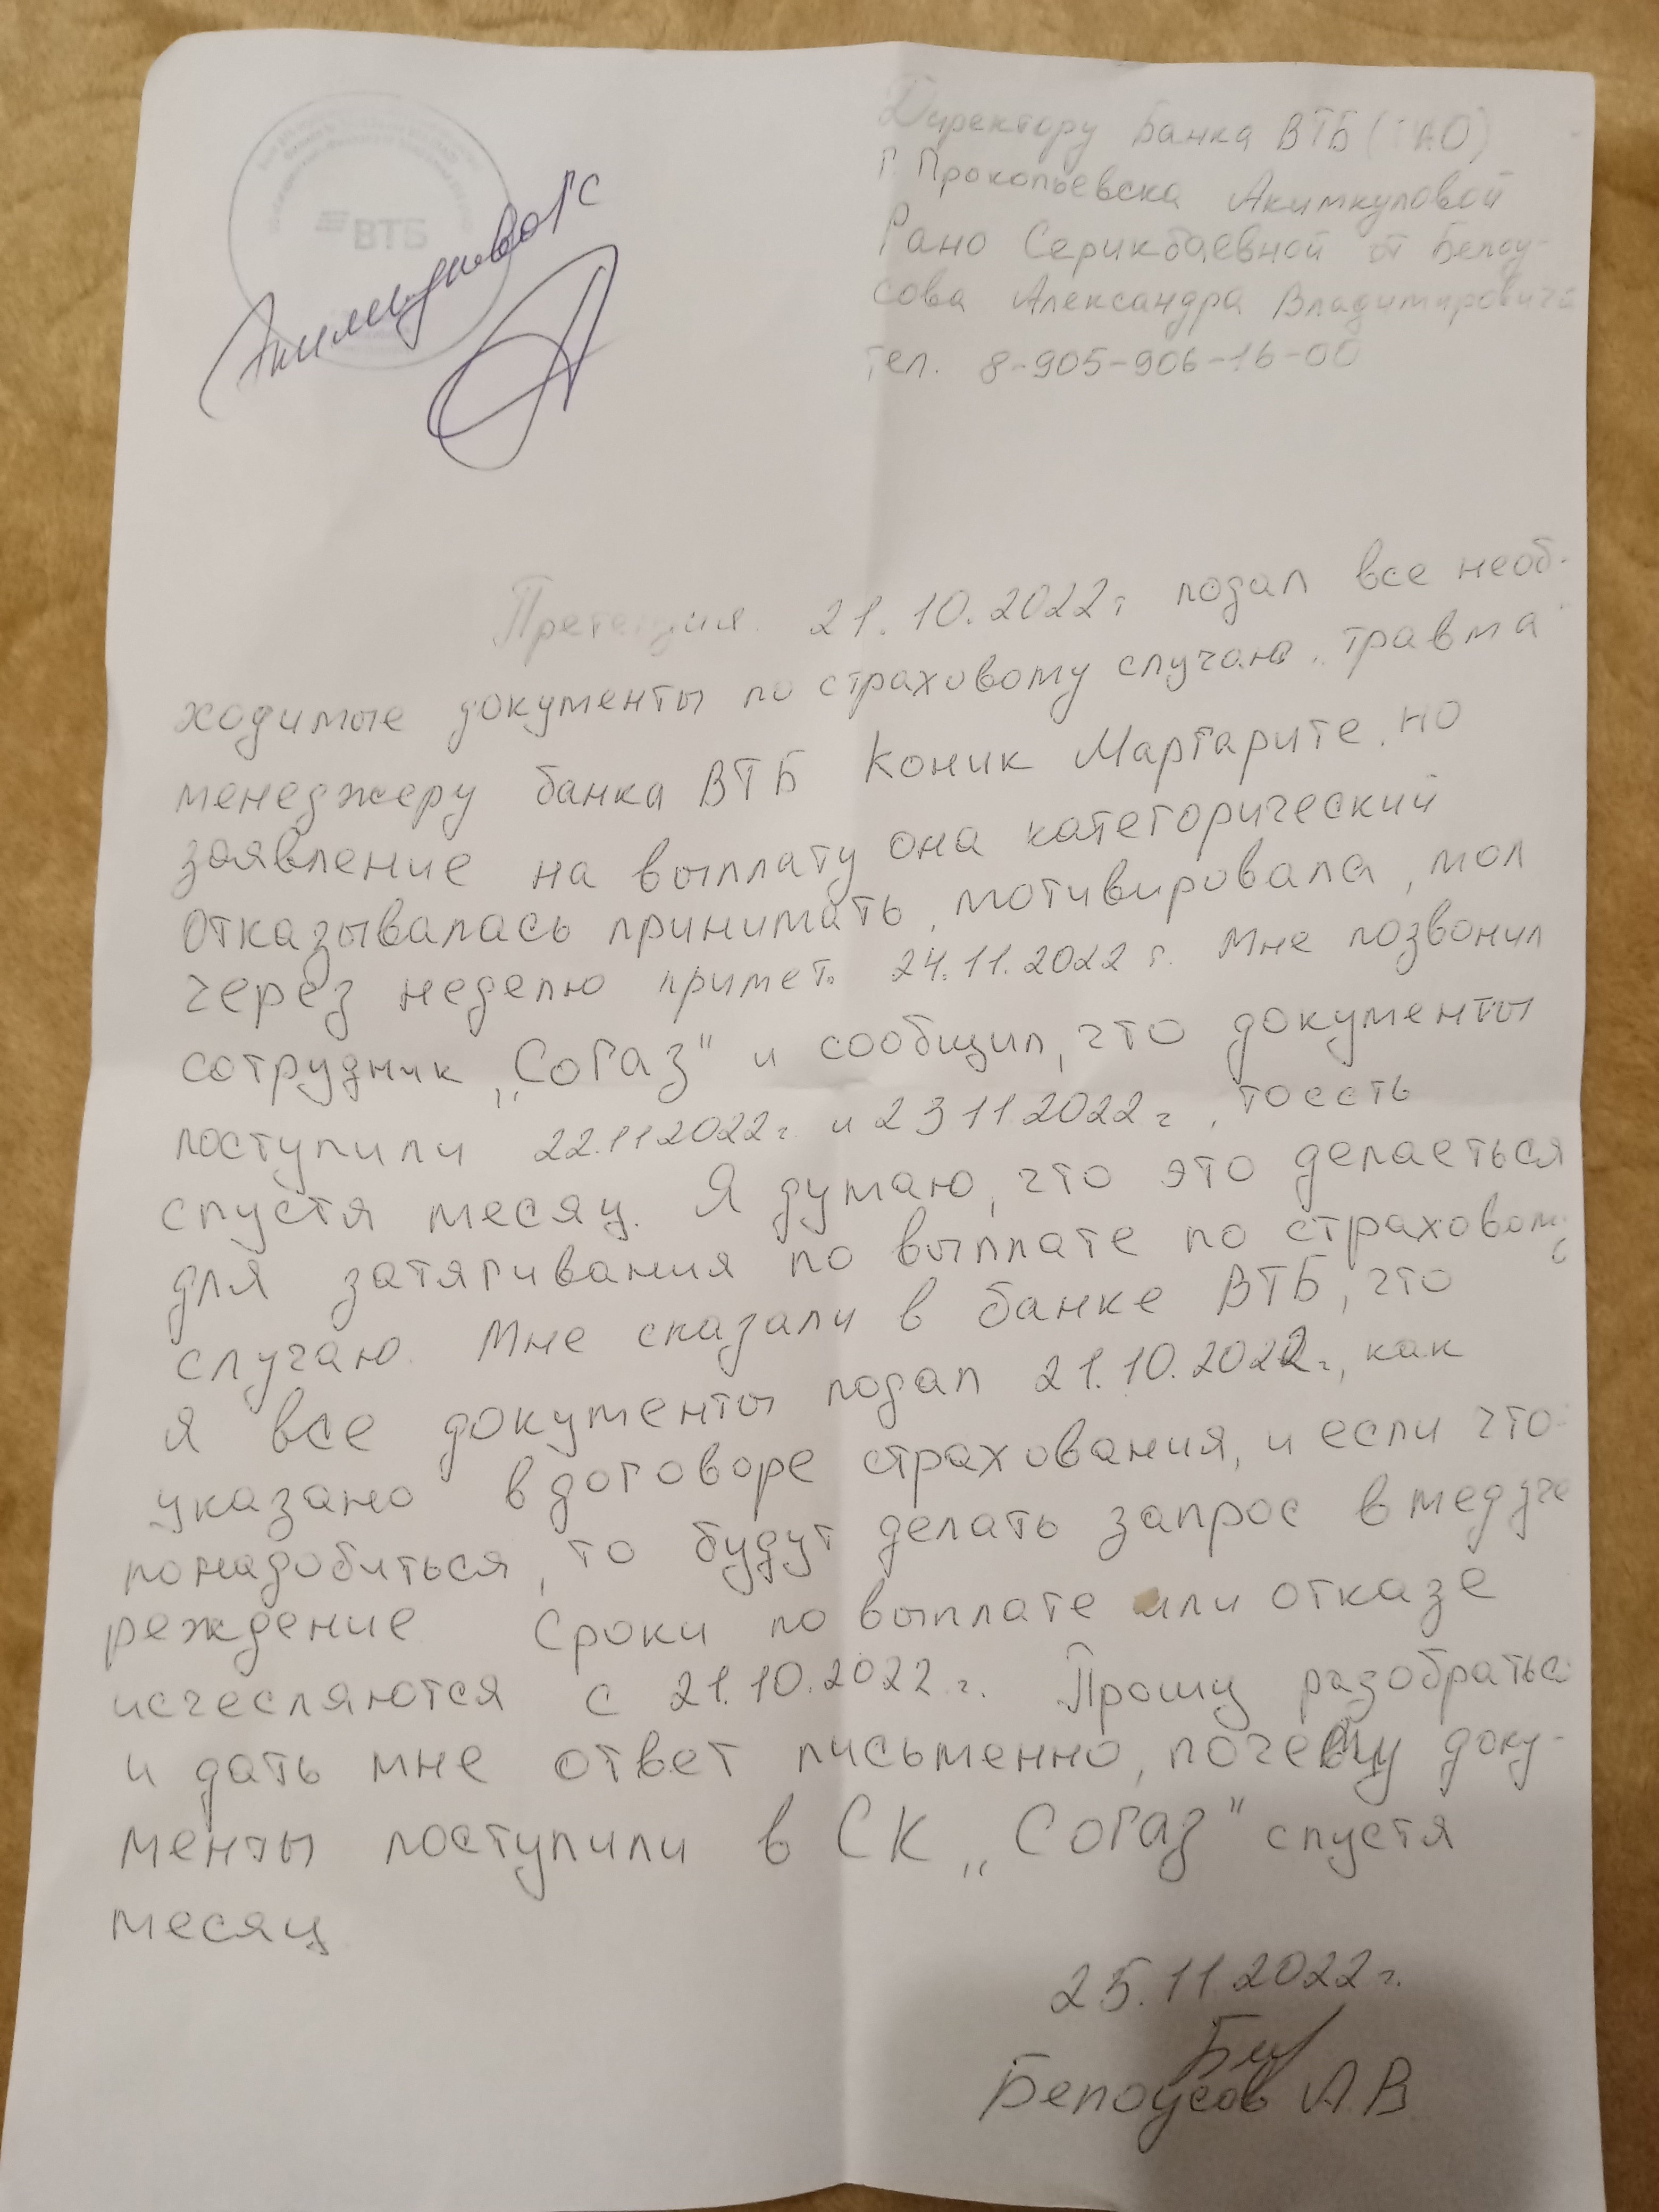 Директору Банка ВТБ (ПАО)
г Прокопьевска Акимкуловой
Рано Серикбаевной от Белоу-
сова Александра Владимировича
тел. 8-905-906-16-00
ВТБ
Претензия. 21.10.2022г подал все необ-
ходимые документы по страховому случаю „травма"
менеджеру банка ВТБ Коник Маргарите, но
заявление на выплату она категорический
отказывалась принимать, мотивировала, мол
через неделю примет. 24.11.2022 г. Мне позвонил
сотрудник „Согаз" и сообщил, что документы
поступили 22.11 2022г. и 23 11.2022г, тоесть
спустя месяц. Я думаю, что это делаеться
для затягивания по выплате по страховому
случаю. Мне сказали в банке ВТБ, что
я все документы подал 21.10.2022г., как
указано в договоре страхования, и если что-
понадобиться, то будут делать запрос в медуче
реждение Сроки по выплате или отказе
исчесляются с 21.10.2022 г. Прошу разобраться
и дать мне ответ письменно, почему доку-
менты поступили в СК „Согаз" спустя
месяц
25.11.2022г.
Белоусов А.В